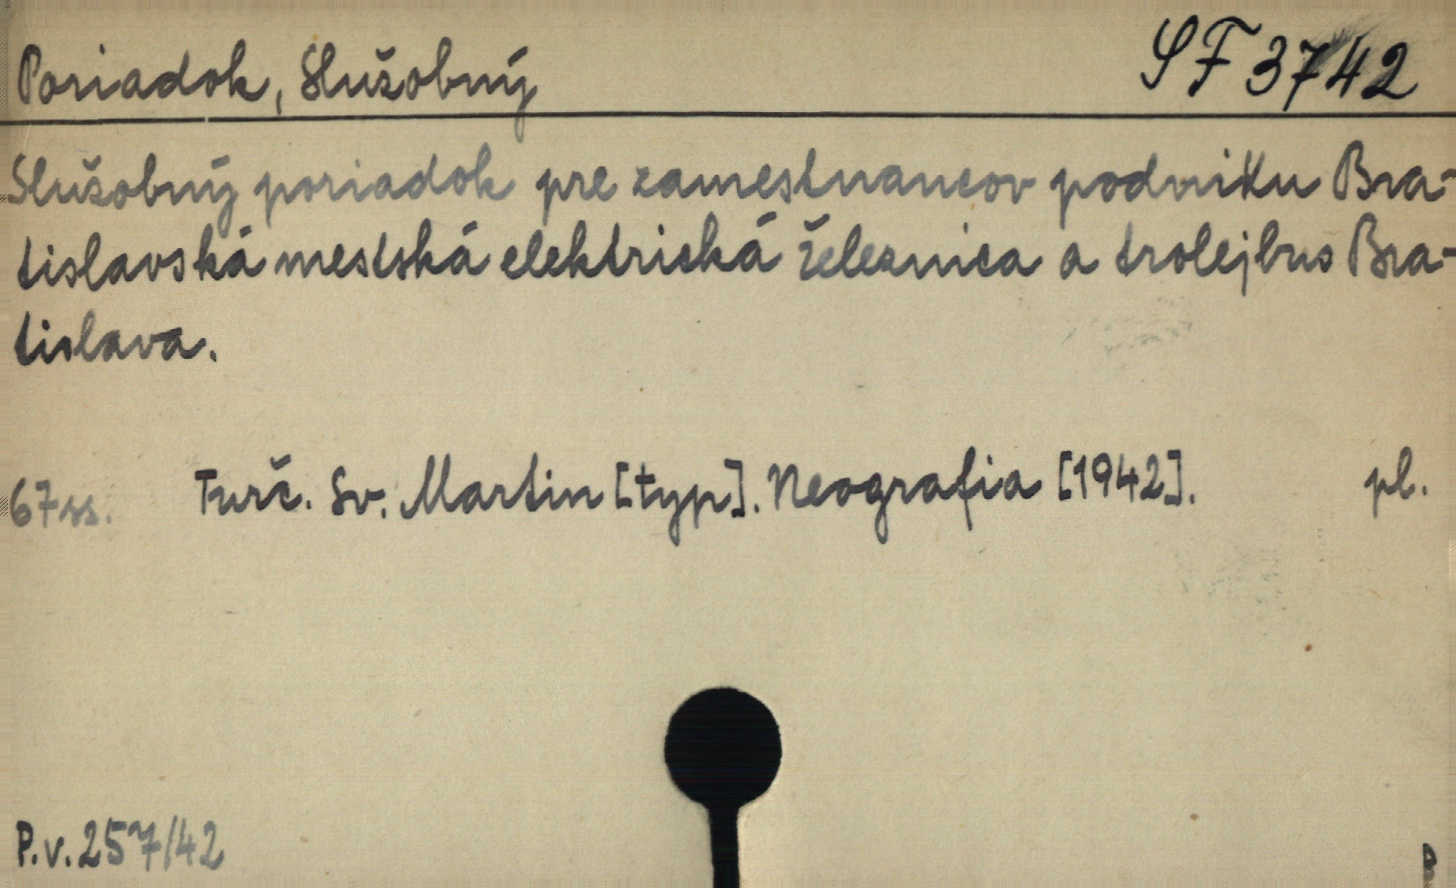 Poriadok, Služobný SF 3742
Služobný poriadok pre zamestnancov podniku Bra-
tislavská mestská elektrická železnica a trolejbus Bra-
tislava.
67 ss. Turč. Sv. Martin [typ]. Neografia [1942]. pl.
P.v. 257/42